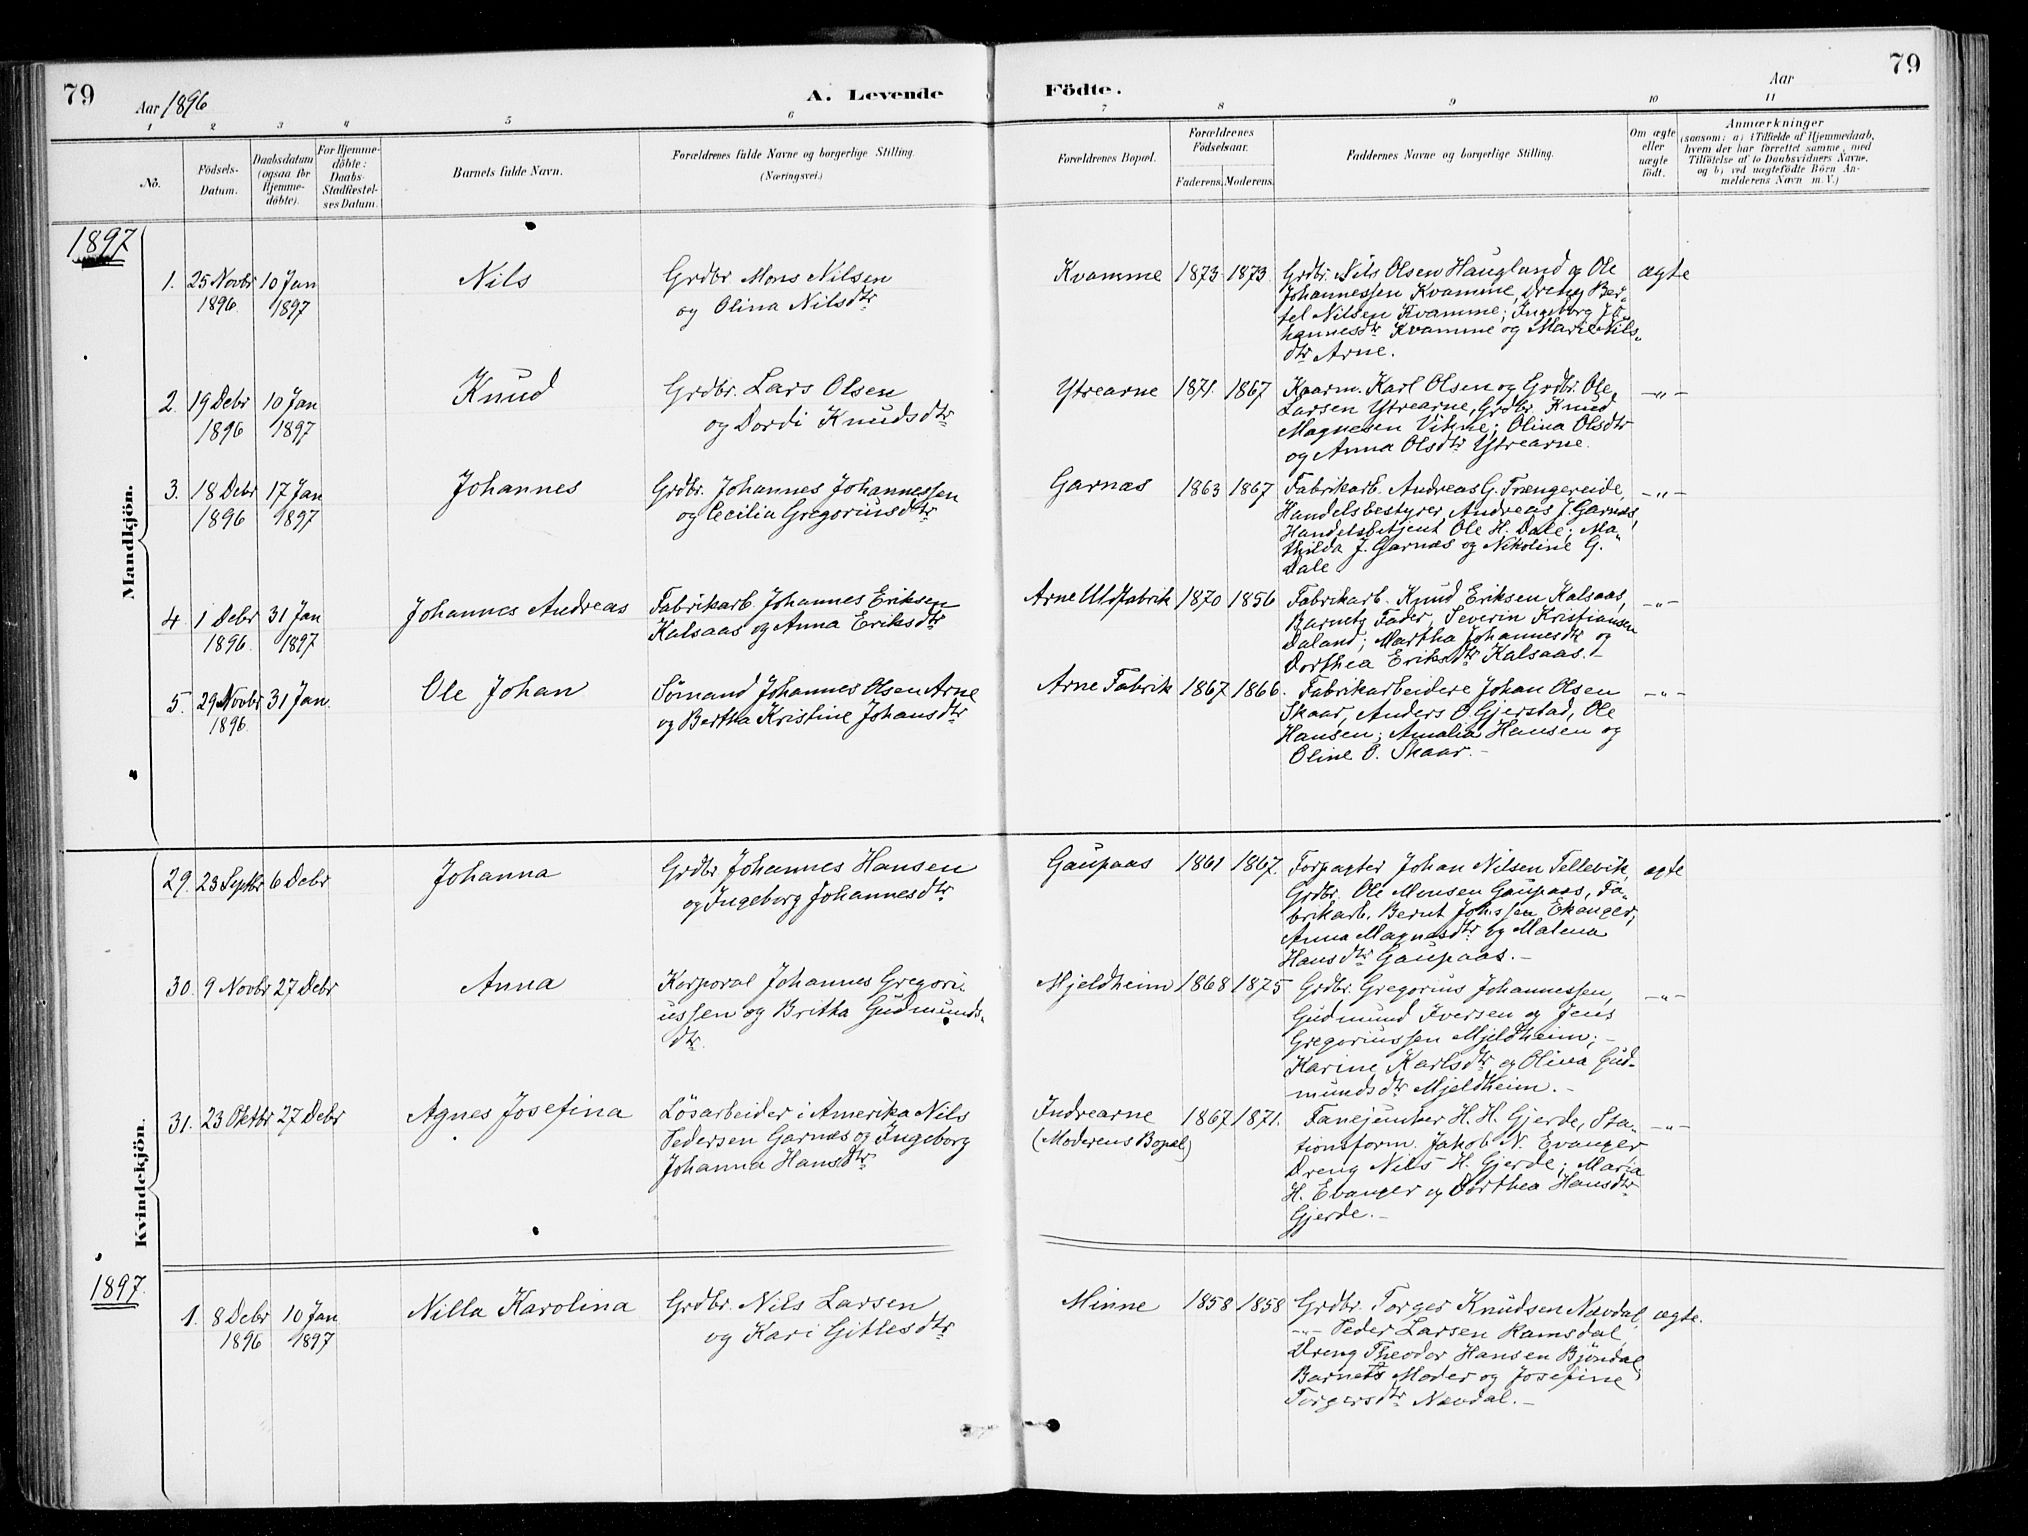 79
Aar 1896
A. Levende
Födte.
Aar
79
1
2
3
4
5
6
7
8
9
10
11
No.
Födsels-
Datum.
Daabsdatum
(ogsaa for
Hjemme-
döbte).
For Hjemme-
döbte:
Daabs-
Stadfæstel-
ses Datum.
Barnets fulde Navn.
Forældrenes fulde Navne og borgerlige Stilling.
(Næringsvei.)
Forældrenes Bopæl.
Forældrenes
Födselsaar.
Faderens.
Moderens.
Faddernes Navne og borgerlige Stilling.
Om ægte
eller
uægte
födt.
Anmærkninger
(saasom: a) i Tilfælde af Hjemmedaab,
hvem der har forrettet samme, med
Tilföielse af to Daabsvidners Navne,
og b) ved uægtefödte Börn An-
melderens Navn m. V.)
1897
Mandkjön.
1. 25 Novbr 10 Jan
1896. 1897
Nils
Grdbr. Mons Nilsen
og Olina Nilsdtr
Kvamme
1873
1873
Grdbr. Nils Olsen Haugland og Ole
Johannessen Kvamme, Dreng Ber-
tel Nilsen Kvamme; Ingeborg Jo-
hannesdtr Kvamme og Marie Nils-
dtr Arne.
ægte
2. 19 Debr 10 Jan
1896 1897
Knud
Grdbr. Lars Olsen
og Dordi Knudsdtr
Ytrearne
1871.
1867
Kaarm. Karl Olsen og Grdbr. Ole
Larsen Ytrearne, Grdbr. Knud
Magnesen Vikne; Olina Olsdtr
og Anna Olsdtr Ytrearne.
-"-
3. 18 Debr 17 Jan
1896 1897
Johannes
Grdbr. Johannes Johannessen
og Cecilia Gregoriusdtr
Garnæs
1863
1867
Fabrikarb. Andreas G. Trengereide,
Handelsbestyrer Andreas J. Garnæs,
Handelsbetjent Ole H. Dale; Ma-
thilda J. Garnæs og Nikoline G.
Dale
-"-
4. 1 Debr 31 Jan
1896. 1897
Johannes Andreas
Fabrikarb. Johannes Eriksen
Kalsaas og Anna Eriksdtr
Arne Uldfabrik
1870
1856
Fabrikarb. Knud Eriksen Kalsaas,
Barnets Fader, Severin Kristiansen
Daland; Martha Johannesdtr og
Dorthea Eriksdtr Kalsaas. -
-"-
5. 29 Novbr 31 Jan.
1896.
Ole Johan
Sømand Johannes Olsen Arne
og Bertha Kristine Johansdtr
Arne Fabrik
1867
1866.
Fabrikarbeidere Johan Olsen
Skaar, Anders O. Gjerstad, Ole
Hansen; Amalia Hansen og
Oline O. Skaar. -
-"-
Kvindekjön.
29. 23 Septbr 6 Debr
Johanna
Grdbr Johannes Hansen
og Ingeborg Johannesdtr
Gaupaas
1861
1867.
Forpagter Johan Nilsen Tellevik,
Grdbr. Ole Monsen Gaupaas, Fa-
brikarb. Bernt Johssen Ekanger;
Anna Magnesdtr og Malena
Hansdtr Gaupaas. -
ægte
30. 9 Novbr 27 Debr
Anna
Korporal Johannes Gregori-
ussen og Britha Gudmunds-
dtr.
Mjeldheim
1868
1875
Grdbr. Gregorius Johannessen,
Gudmund Iversen og Jens
Gregoriussen Mjeldheim; -
Karine Karlsdtr og Olina Gud-
mundsdtr Mjeldheim. -
-"-
31. 23 Oktbr 27 Debr
Agnes Josefina
Løsarbeider i Amerika Nils
Pedersen Garnæs og Ingeborg
Johanna Hansdtr
Indrearne
(Moderens Bopæl)
1867
1871.
Fanejunker H. H. Gjerde, Sta-
tionsform. Jakob N. Evanger
Dreng Nils H. Gjerde; Maria
H. Evanger og Dorthea Hansdtr
Gjerde. -
-"-
1897.
1. 8 Debr 10 Jan
1896 1897
Nilla Karolina
Grdbr. Nils Larsen
og Kari Gitlesdtr
Minne
1858
1858
Grdbr. Torger Knudsen Navdal,
-"- Peder Larsen Ramsdal,
Dreng Theodor Hansen Bjöndal;
Barnets Moder og Josefine
Torgersdtr Navdal. -
ægte.